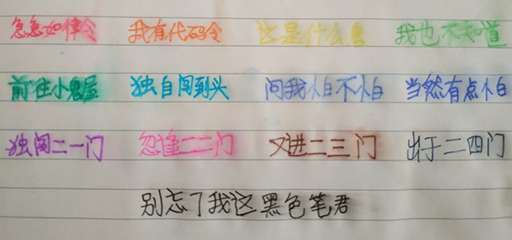 急急如律令 我有代码令 这是什么鬼 我也不知道
前往小鬼屋 独自闯到头 问我怕不怕 当然有点怕
独闯二一门 忽逢二二门 又进二三门 出于二四门
别忘了我这黑色笔君